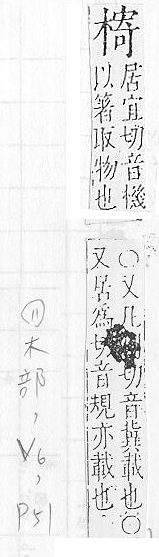 椅
居宜切音機
以箸取物也
○又几切音冀載也○
又居為切音規亦載也
⑪木部，V6，P51